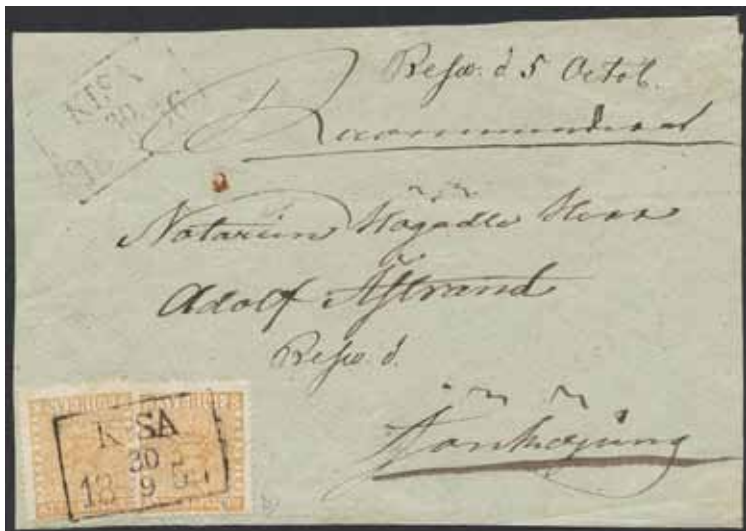 KISA
30
18
d 5 Octob.
Recommenderad
Notarien Högädle Herr
Adolf Åstrand
Jönköping
KISA
30
18 9 5